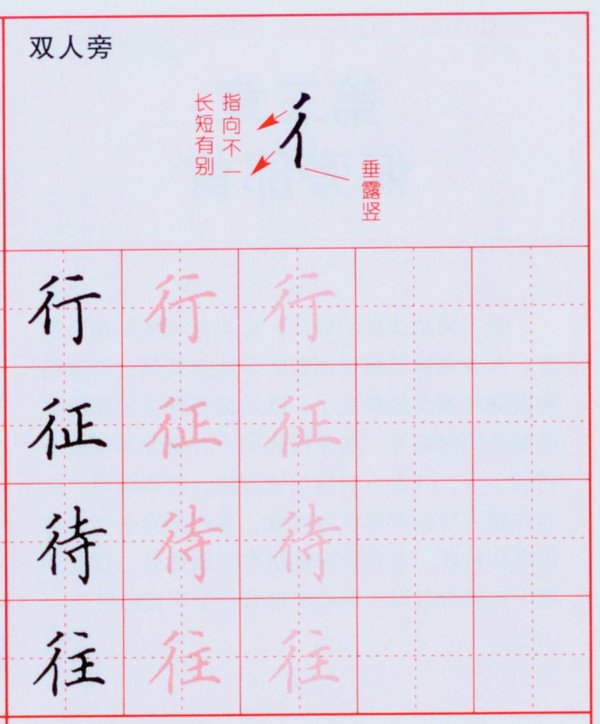 双人旁
指向不一
长短有别
彳
垂露竖
行行行
征征征
待待待
往往往